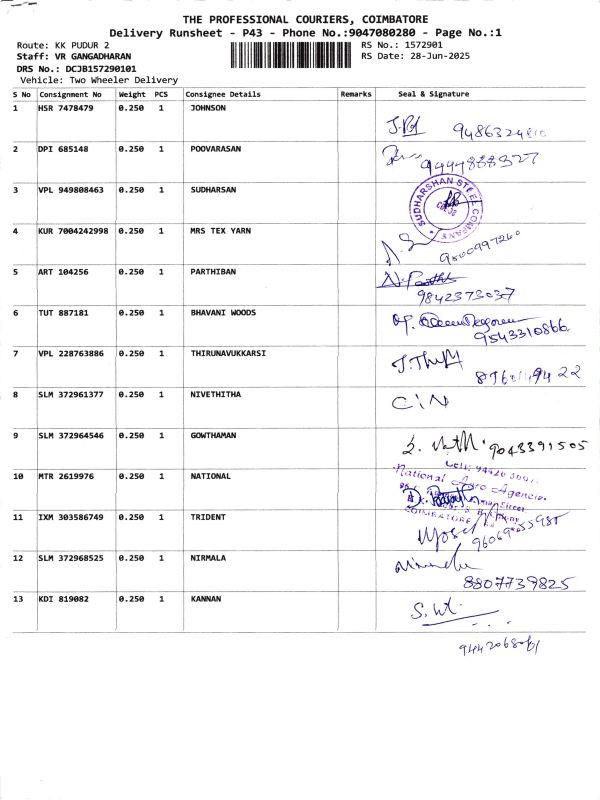 THE PROFESSIONAL COURIERS, COIMBATORE
Delivery Runsheet - P43 - Phone No.:9047080280 - Page No.:1
Route: KK PUDUR 2 RS No.: 1572901
Staff: VR GANGADHARAN RS Date: 28-Jun-2025
DRS No.: DCJB157290101
Vehicle: Two Wheeler Delivery
S No Consignment No Weight PCS Consignee Details Remarks Seal & Signature
1 HSR 7478479 0.250 1 JOHNSON
2 DPI 685148 0.250 1 POOVARASAN
9444888327
3 VPL 949808463 0.250 1 SUDHARSAN
SUDHARSHAN STEEL COMPANY
4 KUR 7004242998 0.250 1 MRS TEX YARN
5 ART 104256 0.250 1 PARTHIBAN
9842373037
6 TUT 887181 0.250 1 BHAVANI WOODS
9543310866
7 VPL 228763886 0.250 1 THIRUNAVUKKARSI
8 SLM 372961377 0.250 1 NIVETHITHA
9 SLM 372964546 0.250 1 GOWTHAMAN
9043391505
10 MTR 2619976 0.250 1 NATIONAL
National Agro Agencies
COIMBATORE
11 IXM 303586749 0.250 1 TRIDENT
12 SLM 372968525 0.250 1 NIRMALA
8807739825
13 KDI 819082 0.250 1 KANNAN